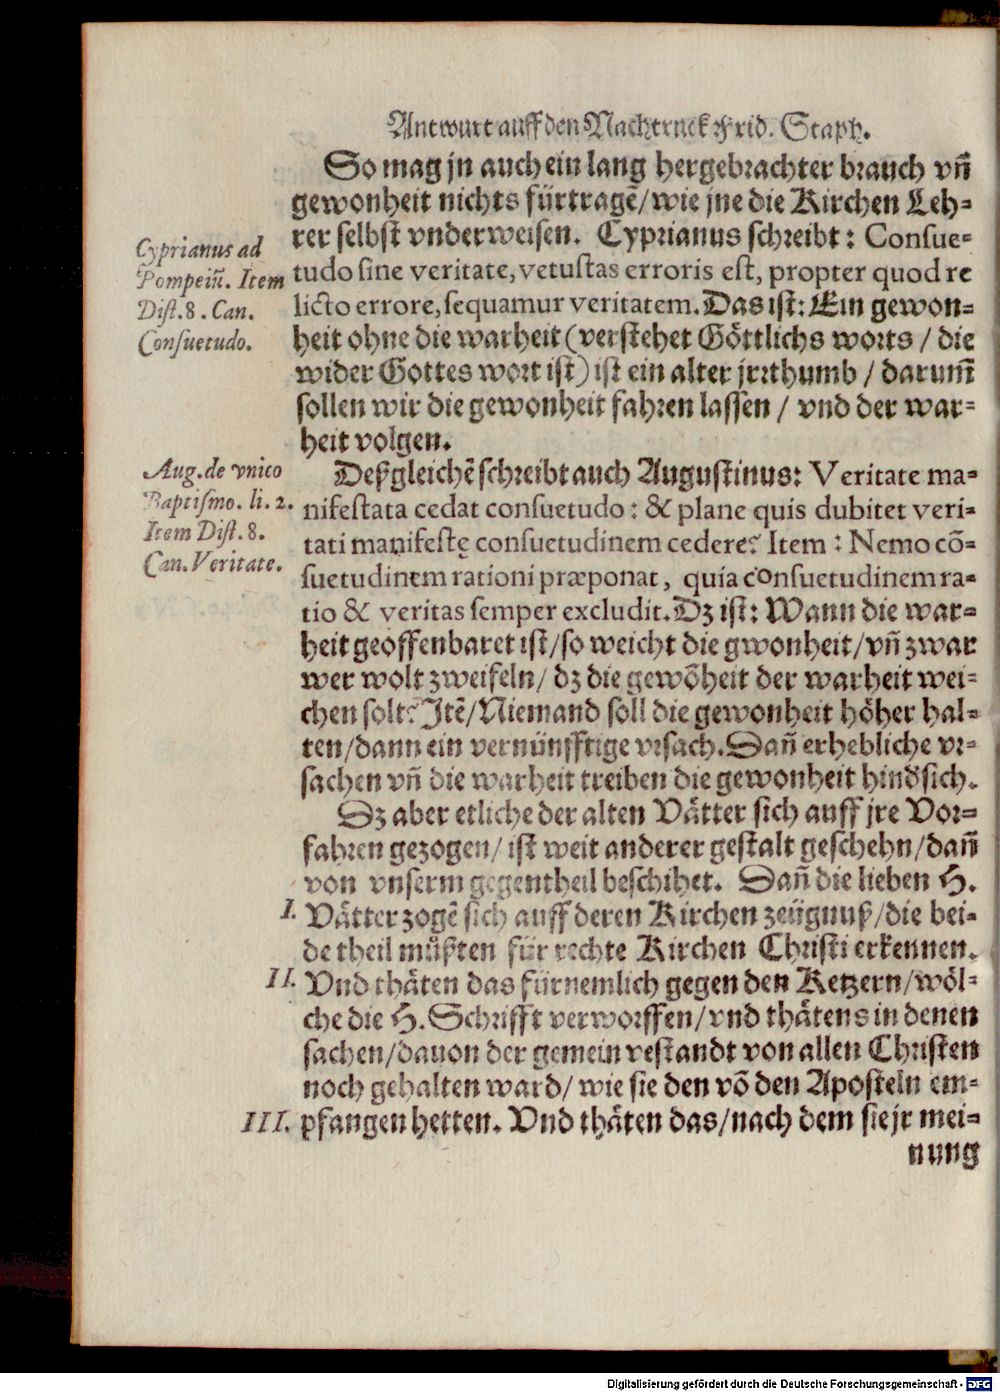 Antwurt auff den Nachtruck Frid. Staph.
So mag jn auch ein lang hergebrachter brauch vñ
gewonheit nichts fürtragẽ/wie jne die Kirchen Leh-
rer selbst vnderweisen. Cyprianus schreibt: Consue-
tudo sine veritate, vetustas erroris est, propter quod re
licto errore, sequamur veritatem. Das ist: Ein gewon-
heit ohne die warheit (verstehet Göttlichs worts / die
wider Gottes wort ist) ist ein alter jrrthumb / darum̃
sollen wir die gewonheit fahren lassen / vnd der war-
heit volgen.
Cyprianus ad
Pompeiũ. Item
Dist. 8. Can.
Consuetudo.
Deßgleichẽ schreibt auch Augustinus: Veritate ma-
nifestata cedat consuetudo: & plane quis dubitet veri-
tati manifestę consuetudinem cedere? Item: Nemo cõ-
suetudinem rationi præponat, quia consuetudinem ra-
tio & veritas semper excludit. Dz ist: Wann die war-
heit geoffenbaret ist/so weicht die gwonheit/vñ zwar
wer wolt zweifeln/ dz die gewõheit der warheit wei-
chen solt? Jtẽ/Niemand soll die gewonheit höher hal-
ten/dann ein vernünfftige vrsach. Dañ erhebliche vr-
sachen vñ die warheit treiben die gewonheit hindsich.
Aug. de vnico
Baptismo. li. 2.
Item Dist. 8.
Can. Veritate.
Dz aber etliche der alten Vätter sich auff jre Vor-
fahren gezogen/ ist weit anderer gestalt geschehn/dañ
von vnserm gegentheil beschihet. Dañ die lieben H.
I. Vätter zogẽ sich auff deren Kirchen zeügnuß/die bei-
de theil müßten für rechte Kirchen Christi erkennen.
II. Vnd thäten das fürnemlich gegen den Ketzern/wöl-
che die H. Schrifft verworffen/vnd thätens in denen
sachen/dauon der gemein vestandt von allen Christen
noch gehalten ward/ wie sie den võ den Aposteln em-
III. pfangen hetten. Vnd thäten das/nach dem sie jr mei-
nung
Digitalisierung gefördert durch die Deutsche Forschungsgemeinschaft - DFG